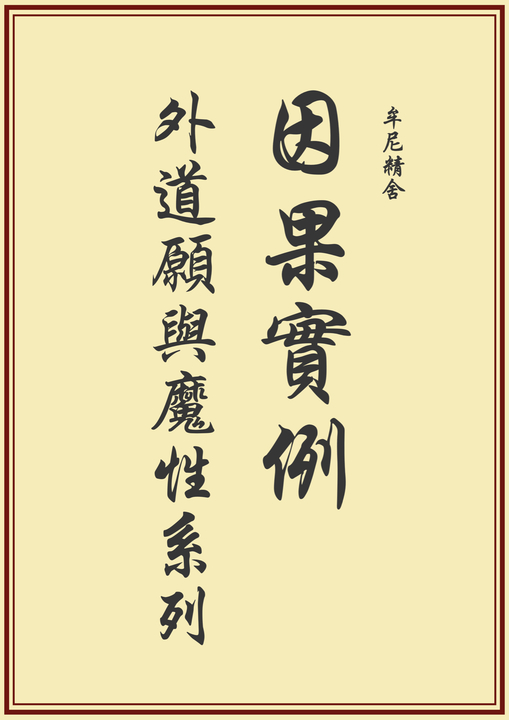 牟尼精舍
因果實例
外道願與魔性系列